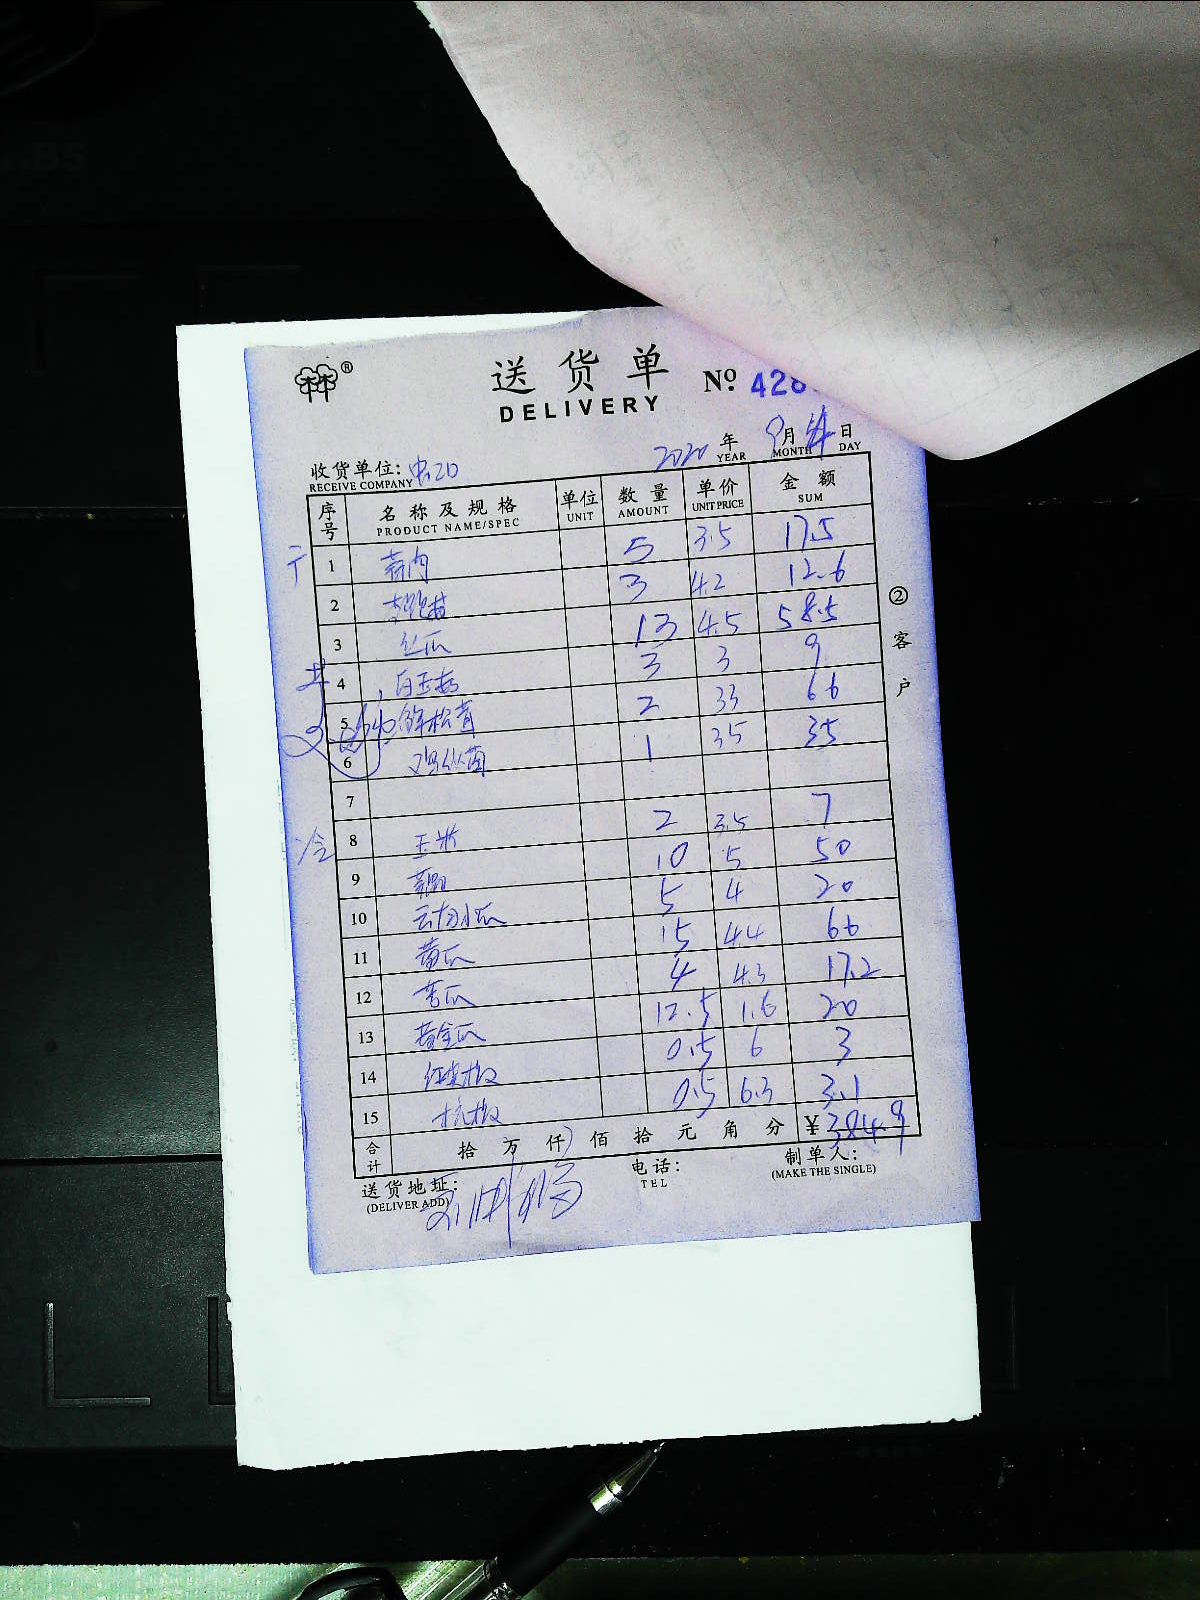 ®
送货单 No 428
DELIVERY
2020 年 9月 日
YEAR MONTH DAY
收货单位:
RECEIVE COMPANY
序号 名称及规格 单位 数量 单价 金额
PRODUCT NAME/SPEC UNIT AMOUNT UNIT PRICE SUM
1 5 3.5 17.5
2 3 4.2 12.6
3 丝瓜 13 4.5 58.5
4 白玉菇 3 3 9
5 鲜松茸 2 33 66
6 鸡纵菌 1 35 35
7
冷 8 玉米 2 3.5 7
9 10 5 50
10 5 4 20
11 黄瓜 15 4.4 66
12 苦瓜 4 4.3 17.2
13 黄金瓜 12.5 1.6 20
14 红尖椒 0.5 6 3
15 杭椒 0.5 6.3 3.1
合计 拾 万 仟 佰 拾 元 角 分 ¥384.9
送货地址: 电话: 制单人:
(DELIVER ADD) TEL (MAKE THE SINGLE)
② 客户